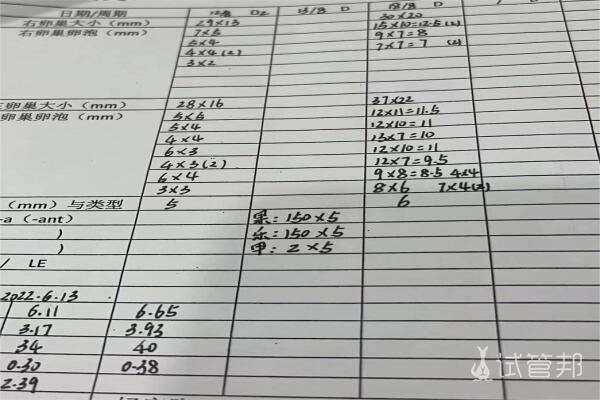 日期/周期 12/8 D2 13/8 D 18/8 D / D
右卵巢大小（mm） 29×13 30×20
右卵巢卵泡（mm） 7×5 15×10=12.5 (2)
5×4 9×7=8
4×4 (2) 7×7=7 (2)
3×2
左卵巢大小（mm） 28×16 37×22
卵巢卵泡（mm） 5×5 12×11=11.5
5×4 12×10=11
4×4 13×7=10
6×3 12×10=11
4×3 (2) 12×7=9.5
6×4 9×8=8.5 4×4
3×3 8×6 7×4(2)
（mm）与类型 5 6
-a（-ant） 果：150×5
） 乐：150×5
） 甲：2×5
/ LE
2022.6.13
6.11 6.65
3.17 3.93
34 40
0.30 0.38
2.39
试管邦